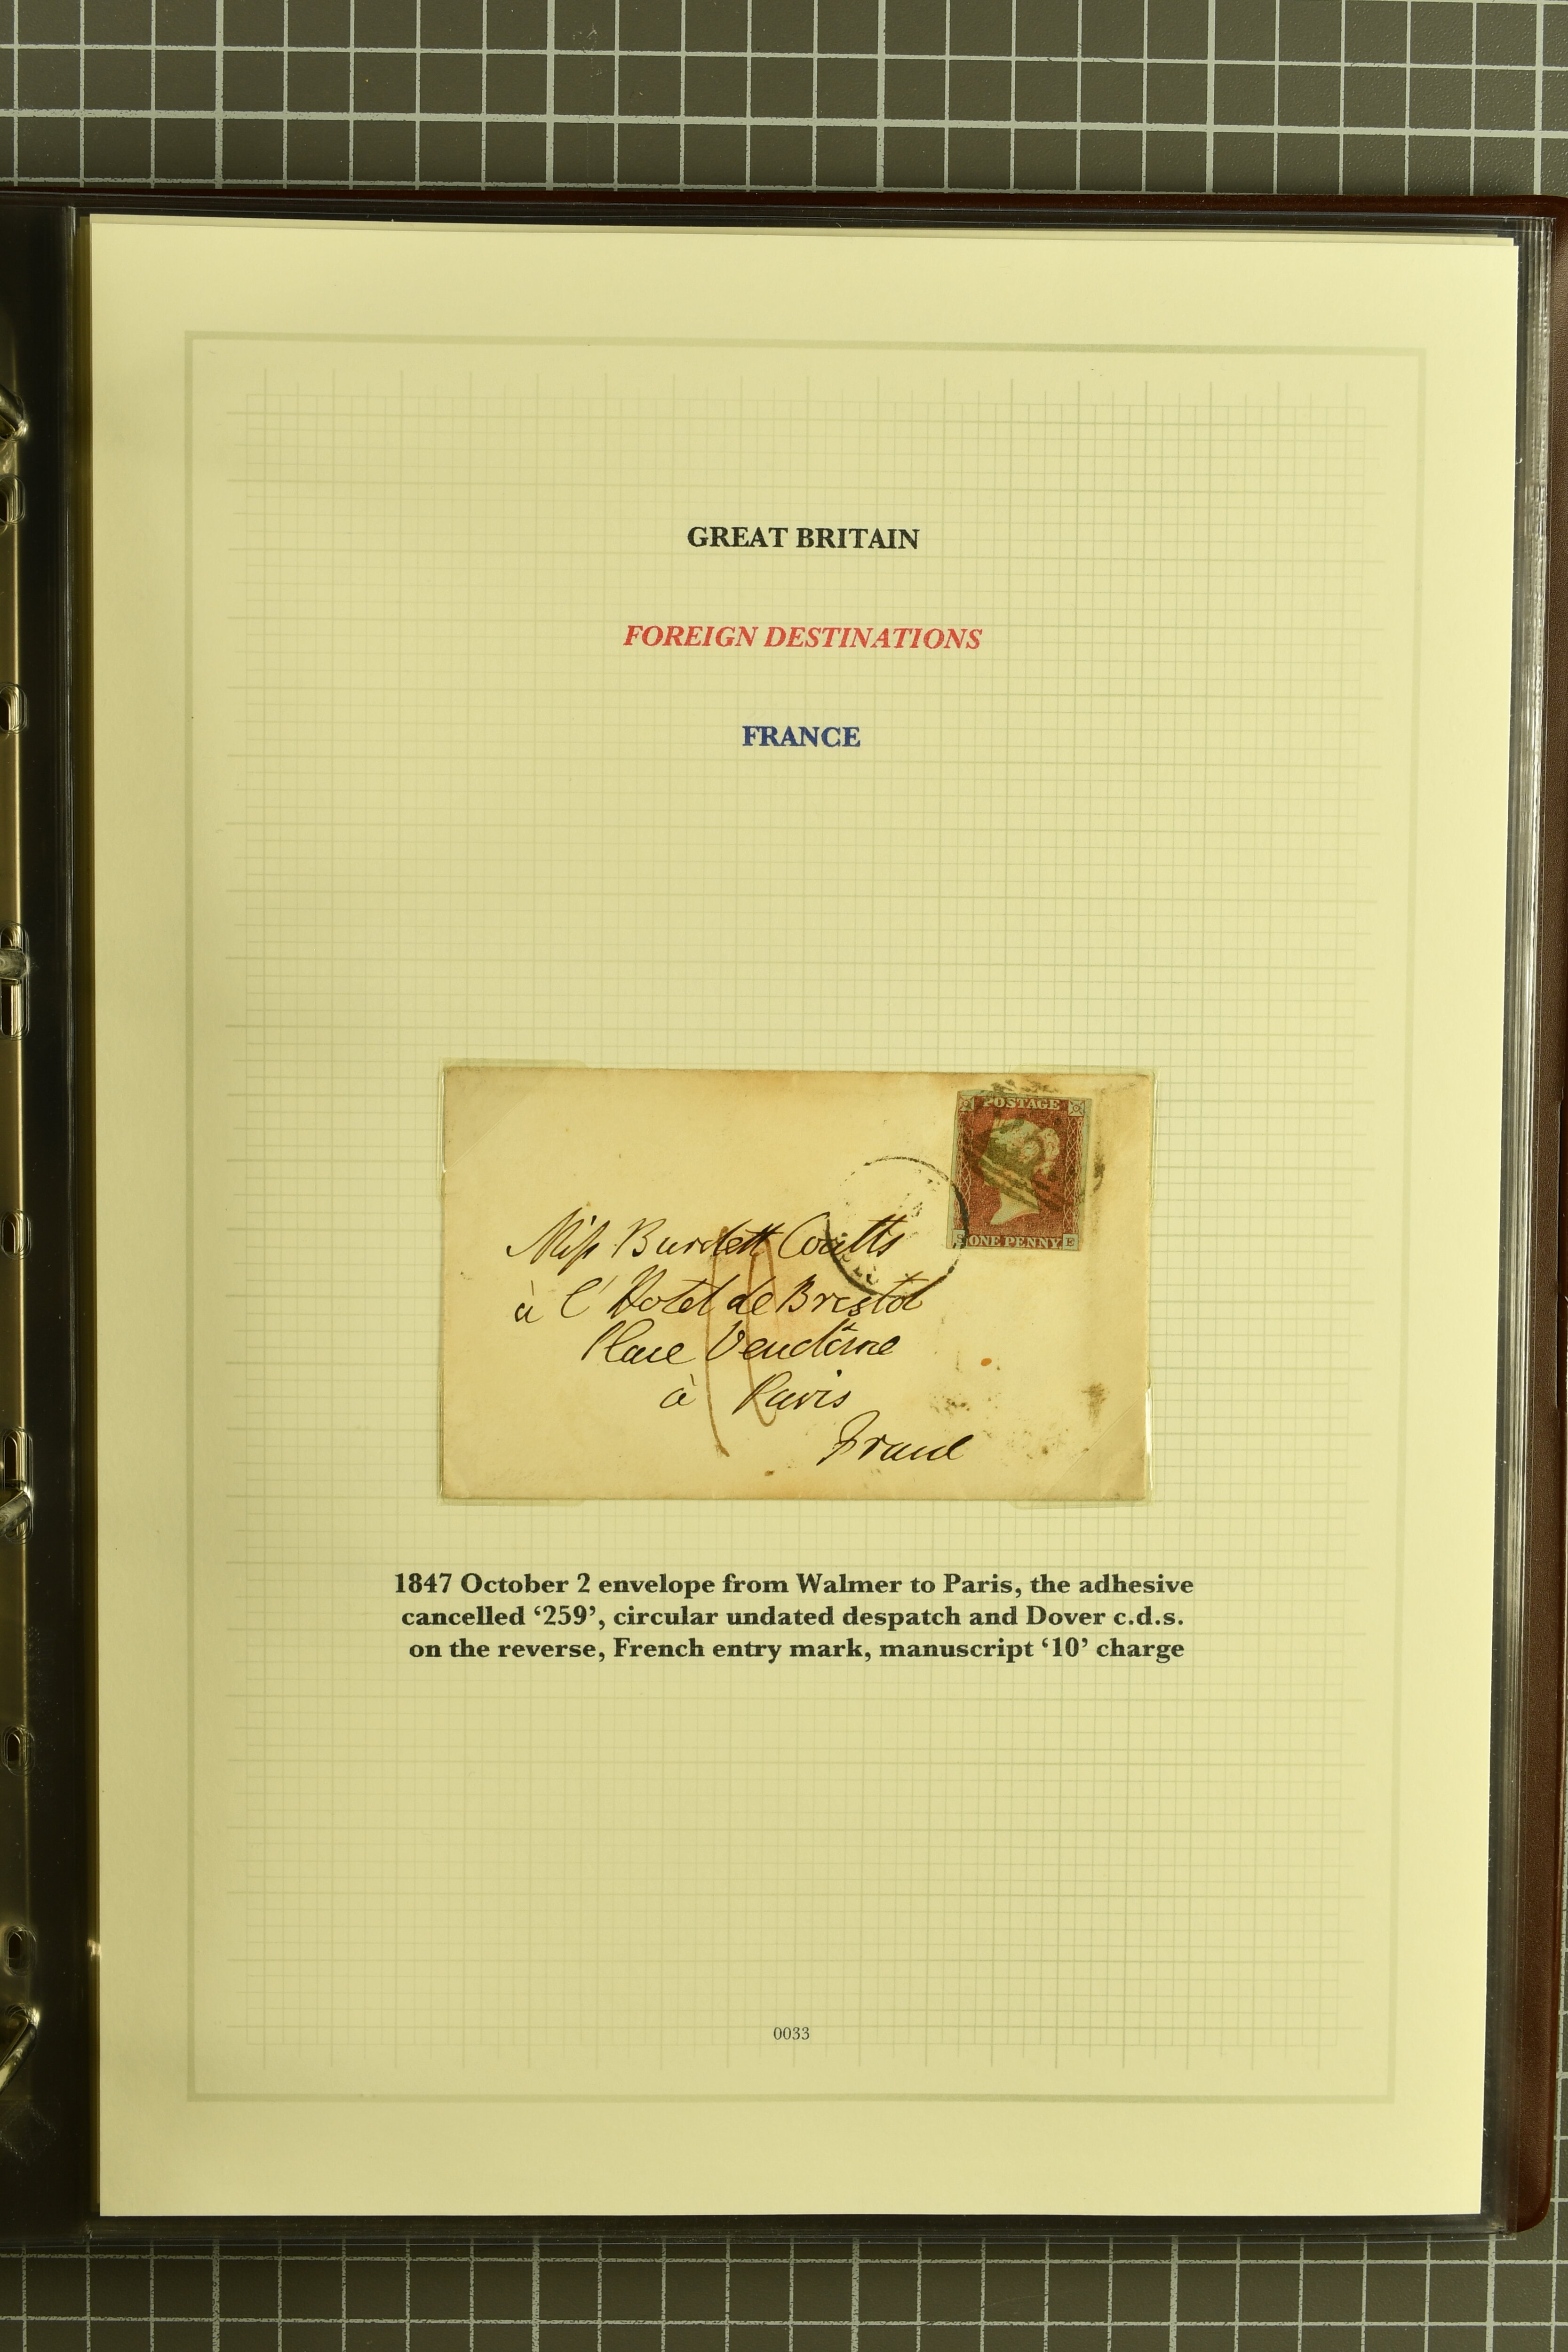 GREAT BRITAIN
FOREIGN DESTINATIONS
FRANCE
POSTAGE
S ONE PENNY E
Miss Burdett Coutts
à l'Hotel de Bristol
Place Vendôme
à Paris
France
10
1847 October 2 envelope from Walmer to Paris, the adhesive
cancelled ‘259’, circular undated despatch and Dover c.d.s.
on the reverse, French entry mark, manuscript ‘10’ charge
0033